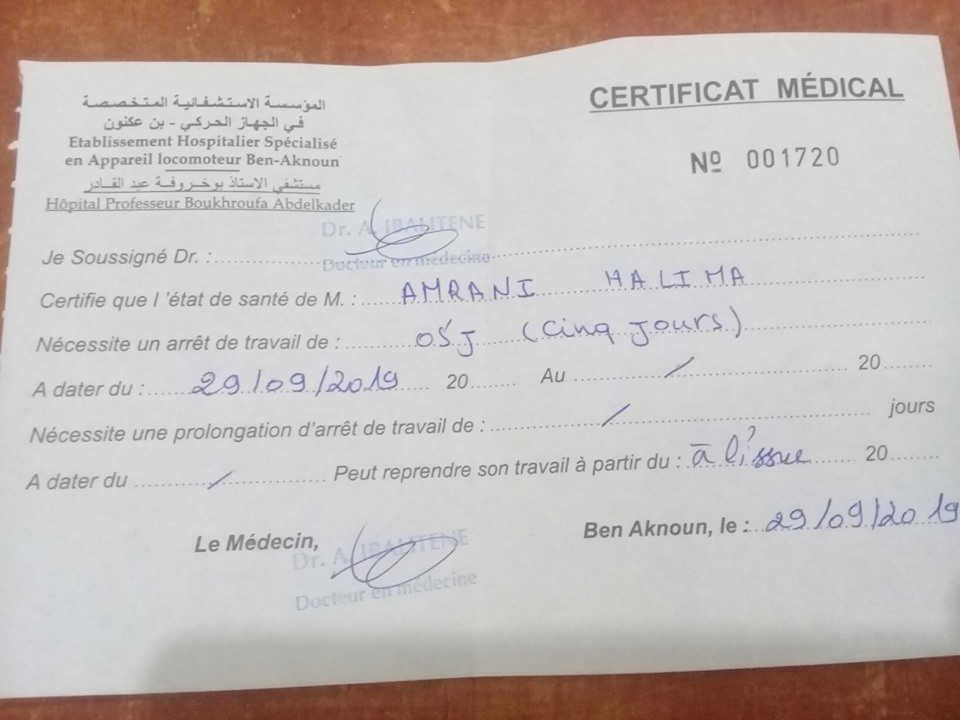 المؤسسة الاستشفائية المتخصصة
في الجهاز الحركي - بن عكنون
Etablissement Hospitalier Spécialisé
en Appareil locomoteur Ben-Aknoun
مستشفى الاستاذ بوخروفة عبد القادر
Hôpital Professeur Boukhroufa Abdelkader
CERTIFICAT MÉDICAL
Nº 001720
Dr. A.
Je Soussigné Dr. :
Docteur en médecine
Certifie que l'état de santé de M. : AMRANI HALIMA
Nécessite un arrêt de travail de : 05 J (Cinq jours)
A dater du : 29/09/2019 20 Au / 20
Nécessite une prolongation d'arrêt de travail de : / jours
A dater du / Peut reprendre son travail à partir du : à l'issue 20
Le Médecin, Ben Aknoun, le : 29/09/2019
Dr. A.
Docteur en médecine